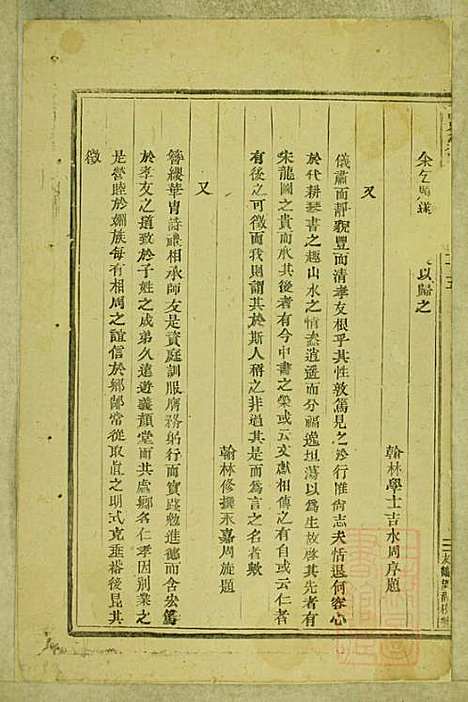 以歸之
翰林學士吉水周序題
又
儀肅而靜貌豐而清孝友根乎其性敦篤見之於行惟尚志夫恬退何容心
於代耕琴書之趣山水之情盍逍遥而分福逸坦蕩以為生故啓其先者有
宋龍圖之貴而承其後者有今中書之榮或云文獻相傳之有自或云仁者
有後之可徵而我則謂其於斯人稱之非過其是而為言之名者歟
翰林修撰永嘉周旋題
又
簪纓華胄詩禮相承師友是資庭訓服膺務躬行而實踐勉進德而含宏篤
於孝友之道致於子姓之成弟久遠遊義顏堂而共處鄉名仁孝因別業之
是營睦於姻族每有相周之誼信於鄉鄰常從取直之明式克垂裕後昆其
徵